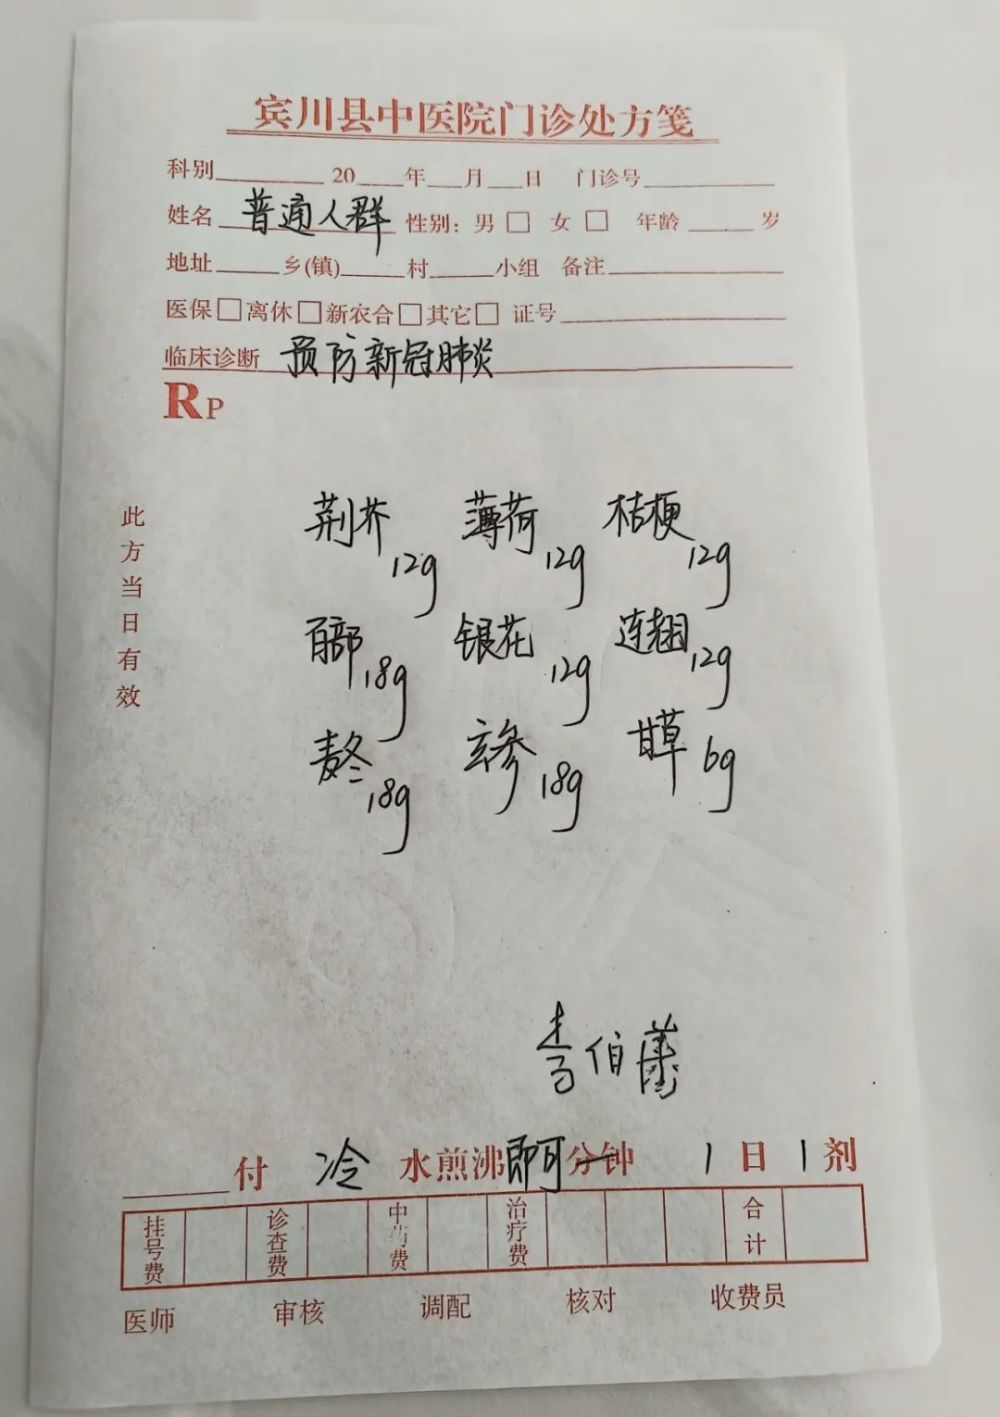 宾川县中医院门诊处方笺
科别 20 年 月 日 门诊号
姓名 普通人群 性别：男 □ 女 □ 年龄 岁
地址 乡(镇) 村 小组 备注
医保□离休□新农合□其它□ 证号
临床诊断 预防新冠肺炎
RP
此方当日有效
荆芥12g 薄荷12g 桔梗12g
百部18g 银花12g 连翘12g
麦冬18g 玄参18g 甘草6g
李伯藩
付 冷 水煎沸即可分钟 1 日 1 剂
挂号费 诊查费 中药费 治疗费 合计
医师 审核 调配 核对 收费员